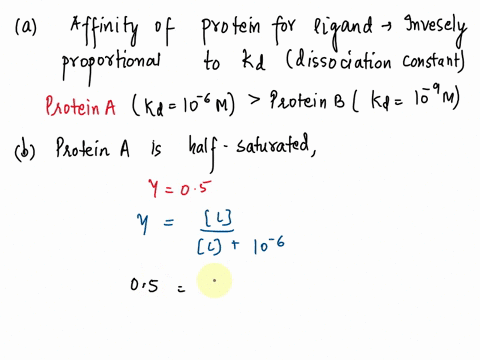 (a) Affinity of protein for ligand → Invesely
proportional to Kd (dissociation constant)
Protein A (Kd = 10⁻⁶ M) > Protein B ( Kd = 10⁻⁹ M)
(b) Protein A is half - saturated,
Y = 0.5
Y = [L] / [L] + 10⁻⁶
0.5 =